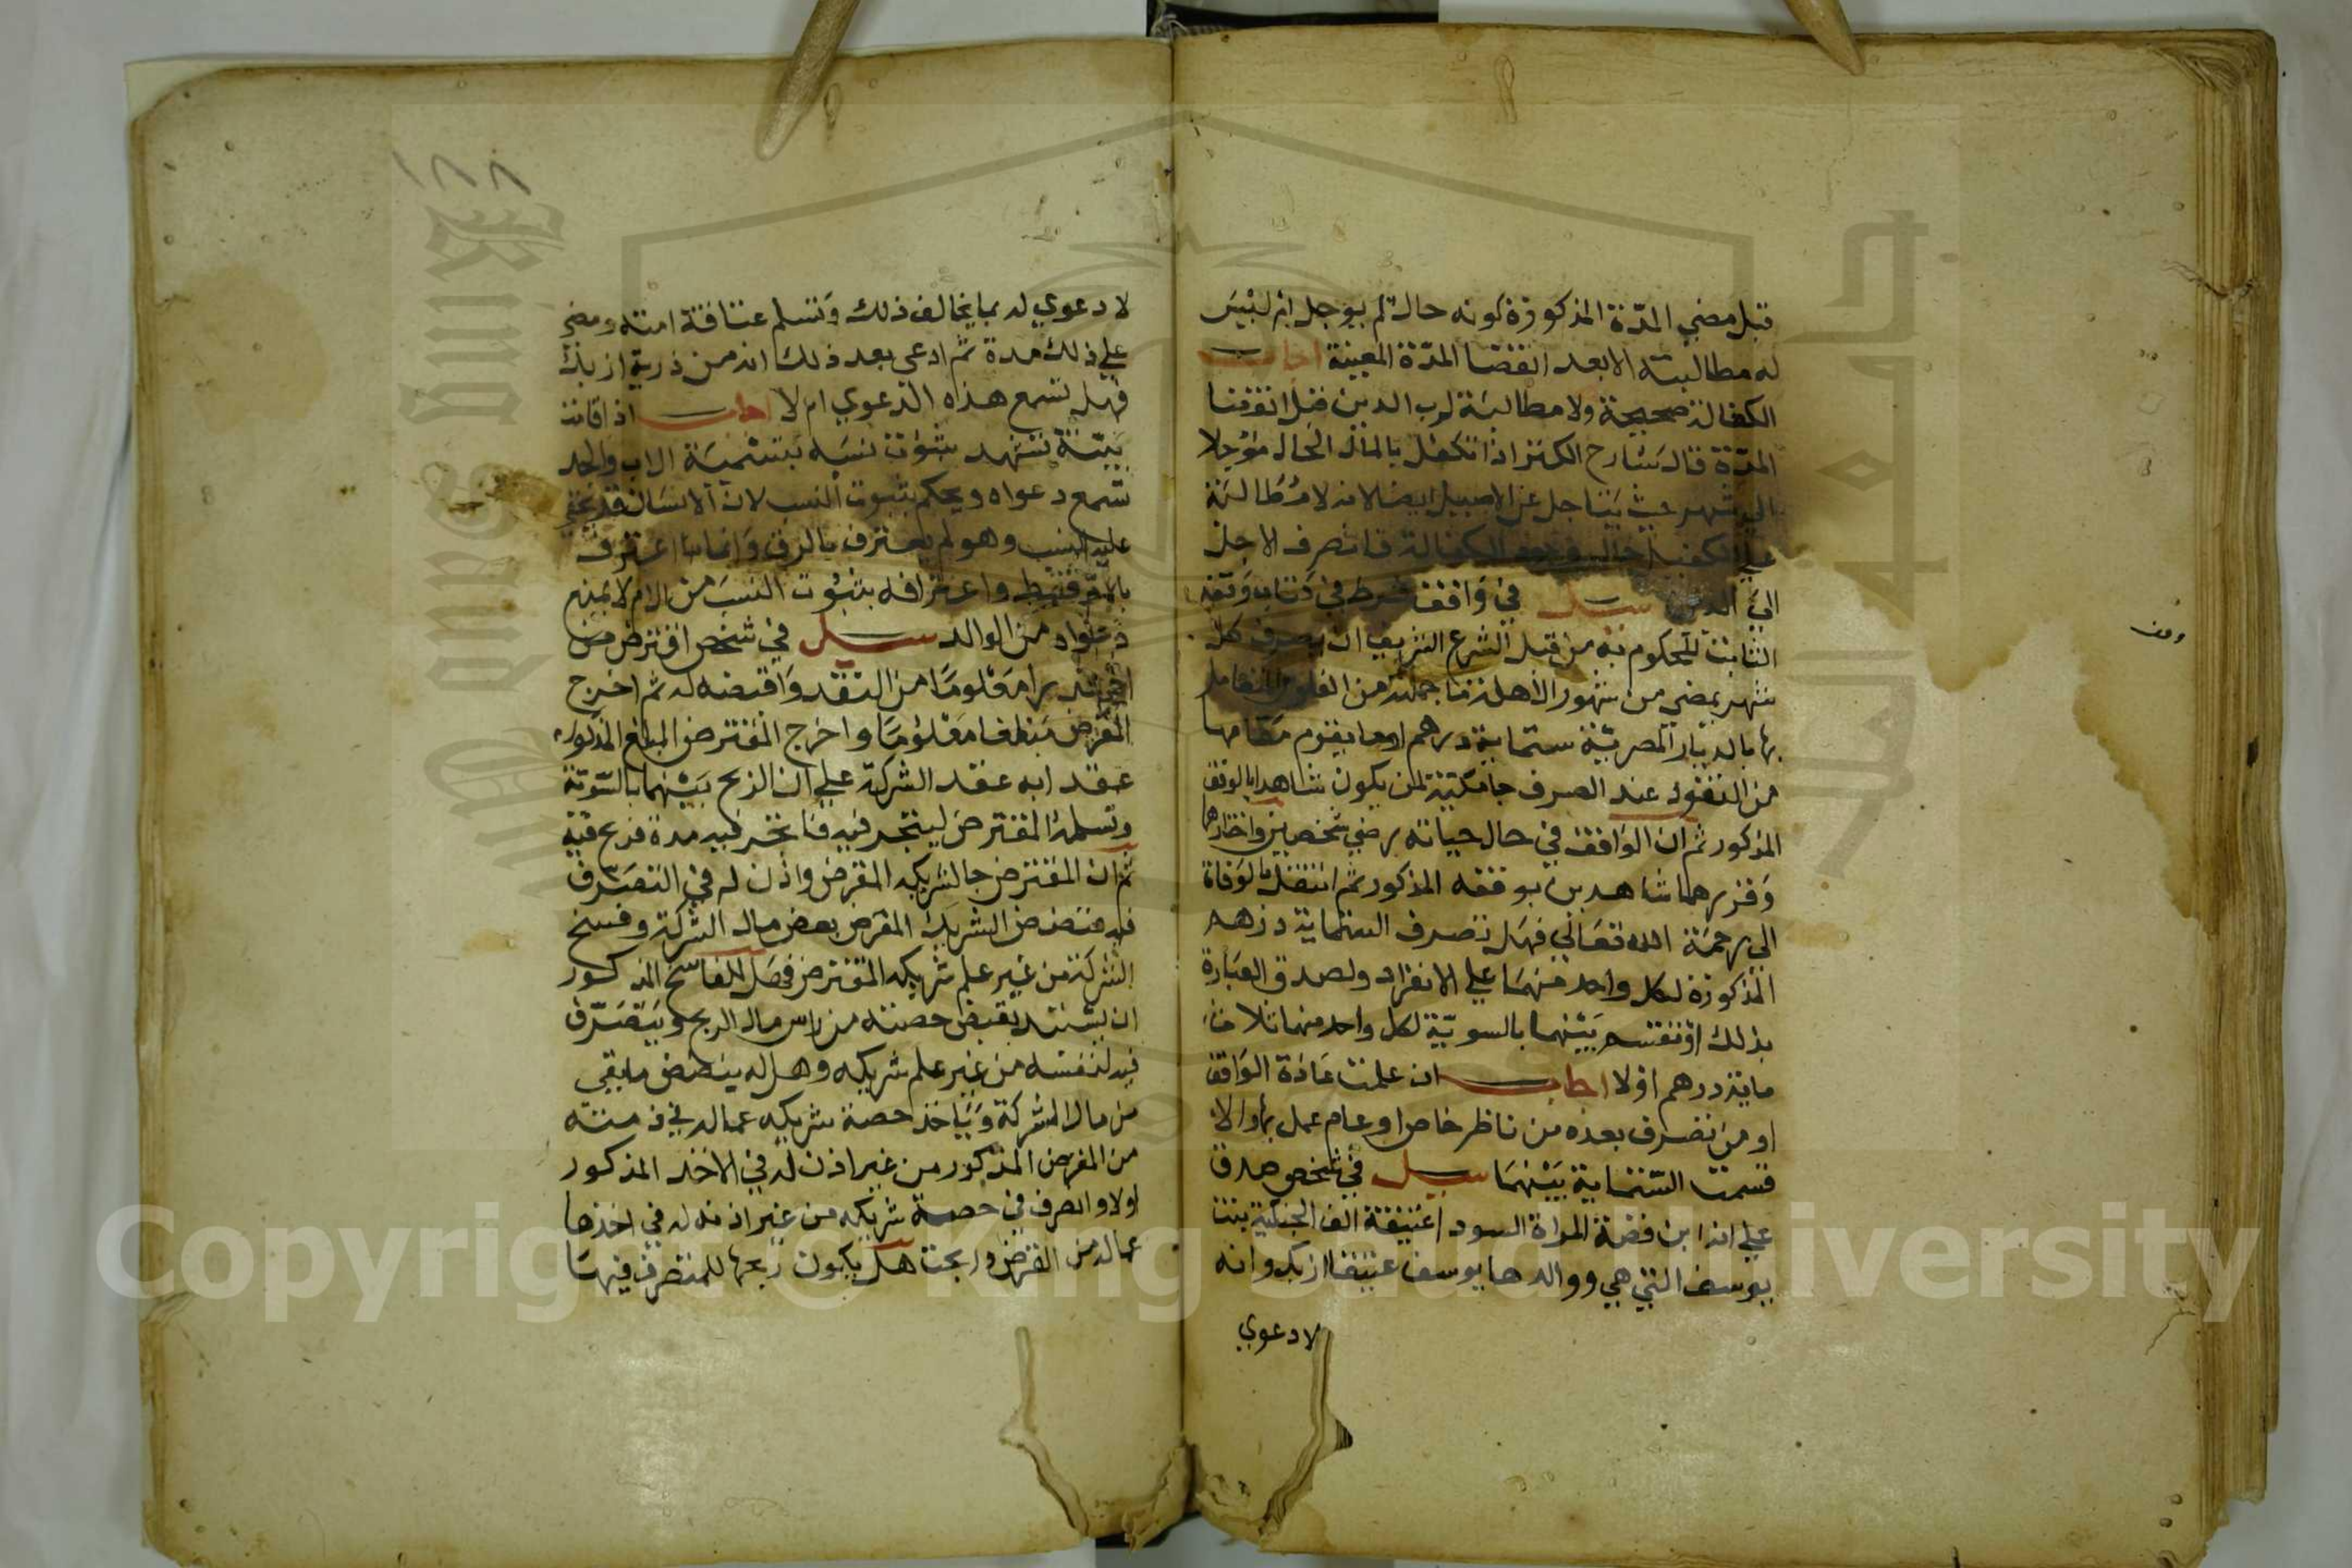 قبل مضي المدة المذكورة كونه حالة لم يوجل ام ليس
له مطالبته الا بعد انقضا المدة المعينة اجاب
الكفالة صحيحة ولا مطالبة لرب الدين قبل انقضا
المدة قال شارح الكنز اذا تكفل بالمال الحال موجلا
الي شهر حيث يتاجل عن الاصيل ايضا لانه لا مطالبة
علي الكفيل حال وجود الكفالة فانصرف الاجل
الي الدين سيل في واقف شرط في كتاب وقفه
الثابت المحكوم به من قبل الشرع الشريف ان يصرف كل
شهر يمضي من شهور الاهلة ما جملته من الفلوس المتعامل
بها بالديار المصرية ستماية درهم او ما يقوم مقامها
من النقود عند الصرف جامكية لمن يكون شاهدا بالوقف
المذكور ثم ان الواقف في حال حياته رضي شخصين واختارهما
وقررهما شاهدين بوقفه المذكور ثم انتقل بالوفاة
الى رحمة الله تعالي فهل تصرف الستماية درهم
المذكورة لكل واحد منهما علي الانفراد ولصدق العبارة
بذلك او تقسم بينهما بالسوية لكل واحد منهما ثلاث
ماية درهم او لا اجاب ان علمت عادة الواقف
او من تصرف بعده من ناظر خاص او عام عمل بها والا
قسمت الستماية بينهما سيل في شخص صدق
علي انه ابن فضة المراة السودا عتيقة الف الجنكية بنت
يوسف التي هي ووالدها يوسف عتيقا ازبك وانه
لا دعوي
وقف
لا دعوي له بما يخالف ذلك وتسلم عتاقة امته ومضي
علي ذلك مدة ثم ادعى بعد ذلك انه من ذرية ازبك
فهل تسمع هذه الدعوي ام لا اجاب اذا قامت
بينة تشهد بثبوت نسبه بتسمية الاب والجد
تسمع دعواه ويحكم بثبوت النسب لان الانسان قد يخفي
عليه النسب وهو لم يعترف بالرق وانما اعترف
بالام فقط واعترافه بثبوت النسب من الام لا يمنع
دعواه من الوالد سيل في شخص اقترض من
اخر قدرا معلوما من النقد واقبضه له ثم اخرج
المقرض مبلغا معلوما واخرج المقترض المبلغ المذكور
عقدا به عقد الشركة علي ان الربح بينهما بالسوية
وتسلمه المقترض ليتجر فيه فاتجر فيه مدة فربح فيه
ثم ان المقترض جا لشريكه المقرض واذن له في التصرف
فيه فنضض الشريك المقرض بعض مال الشركة وفسخ
الشركة من غير علم شريكه المقترض فهل للفاسخ المذكور
ان يستبد بقبض حصته من راس مال الربح ويتصرف
فيه لنفسه من غير علم شريكه وهل له ينضض ما بقي
من مال الشركة وياخذ حصة شريكه عما له في ذمته
من القرض المذكور من غير اذن له في الاخذ المذكور
اولا والصرف في حصة شريكه من غير اذنه له في اخذها
عما له من القرض وربحت هل يكون ربحها للمتصرف فيها
Copyright © King Saud University
King Saud University